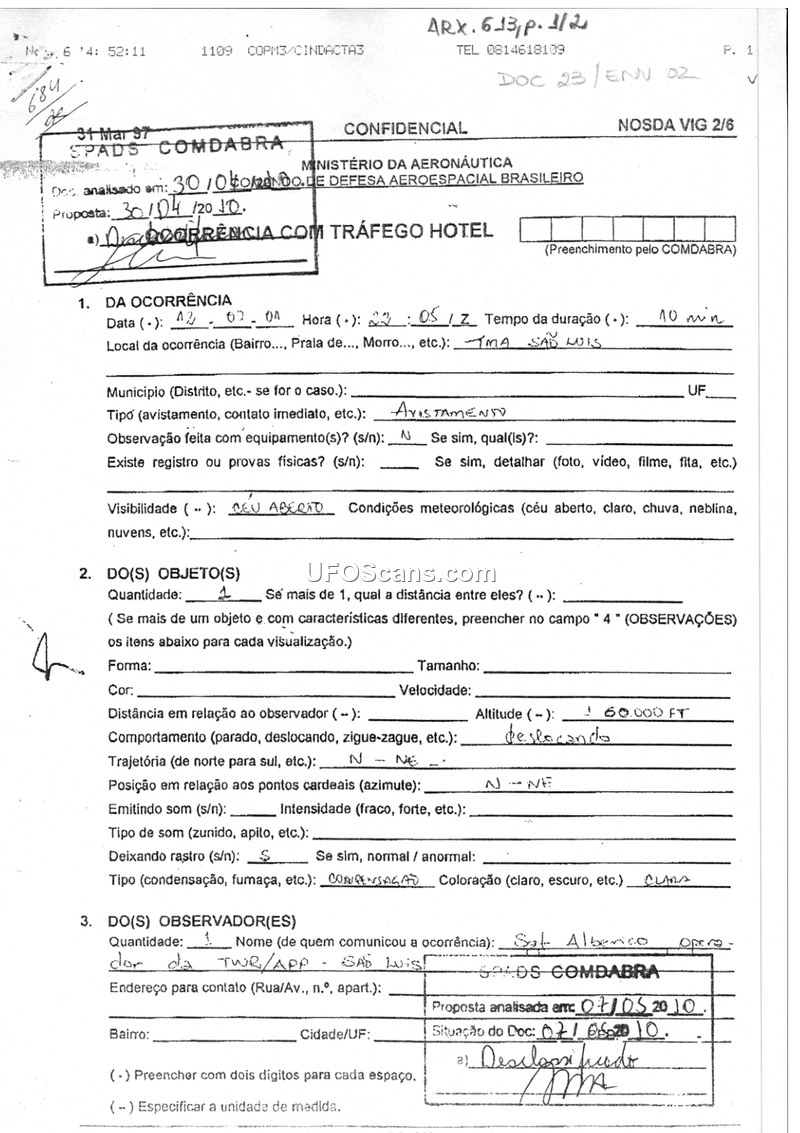 ARX. 613, p. 1/2
6 '4: 52:11 1109 COPM3/CINDACTA3 TEL 0814618109 P. 1
DOC 23/ENV 02
684
31 Mar 97 CONFIDENCIAL NOSDA VIG 2/6
SPADS COMDABRA
MINISTÉRIO DA AERONÁUTICA
Doc. analisado em: 30/04/2010
COMANDO DE DEFESA AEROESPACIAL BRASILEIRO
Proposta: 30/04/2010.
a)
OCORRÊNCIA COM TRÁFEGO HOTEL
(Preenchimento pelo COMDABRA)
1. DA OCORRÊNCIA
Data ( · ): 12 - 07 - 01 Hora ( · ): 23 : 05 / Z Tempo da duração ( · ): 10 min
Local da ocorrência (Bairro..., Praia de..., Morro..., etc.): TMA SÃO LUIS
Municipio (Distrito, etc.- se for o caso.): UF
Tipo (avistamento, contato imediato, etc.): AVISTAMENTO
Observação feita com equipamento(s)? (s/n): N Se sim, qual(is)?:
Existe registro ou provas físicas? (s/n): Se sim, detalhar (foto, vídeo, filme, fita, etc.)
Visibilidade ( -- ): CÉU ABERTO Condições meteorológicas (céu aberto, claro, chuva, neblina,
nuvens, etc.):
2. DO(S) OBJETO(S)
UFOScans.com
Quantidade: 1 Se mais de 1, qual a distância entre eles? ( -- ):
( Se mais de um objeto e com características diferentes, preencher no campo " 4 " (OBSERVAÇÕES)
os itens abaixo para cada visualização.)
Forma: Tamanho:
Cor: Velocidade:
Distância em relação ao observador ( -- ): Altitude ( -- ): ± 60.000 FT
Comportamento (parado, deslocando, zigue-zague, etc.): deslocando
Trajetória (de norte para sul, etc.): N - NE
Posição em relação aos pontos cardeais (azimute): N - NE
Emitindo som (s/n): Intensidade (fraco, forte, etc.):
Tipo de som (zunido, apito, etc.):
Deixando rastro (s/n): S Se sim, normal / anormal:
Tipo (condensação, fumaça, etc.): CONDENSAÇÃO Coloração (claro, escuro, etc.) CLARA
3. DO(S) OBSERVADOR(ES)
Quantidade: 1 Nome (de quem comunicou a ocorrência): Sgt Alberico opera-
dor da TWR/APP - SÃO LUIS
SPADS COMDABRA
Endereço para contato (Rua/Av., n.º, apart.):
Proposta analisada em: 07/05 2010.
Bairro: Cidade/UF:
Situação do Doc: 07/05 2010.
a) Desclassificado
( · ) Preencher com dois dígitos para cada espaço.
( -- ) Especificar a unidade de medida.